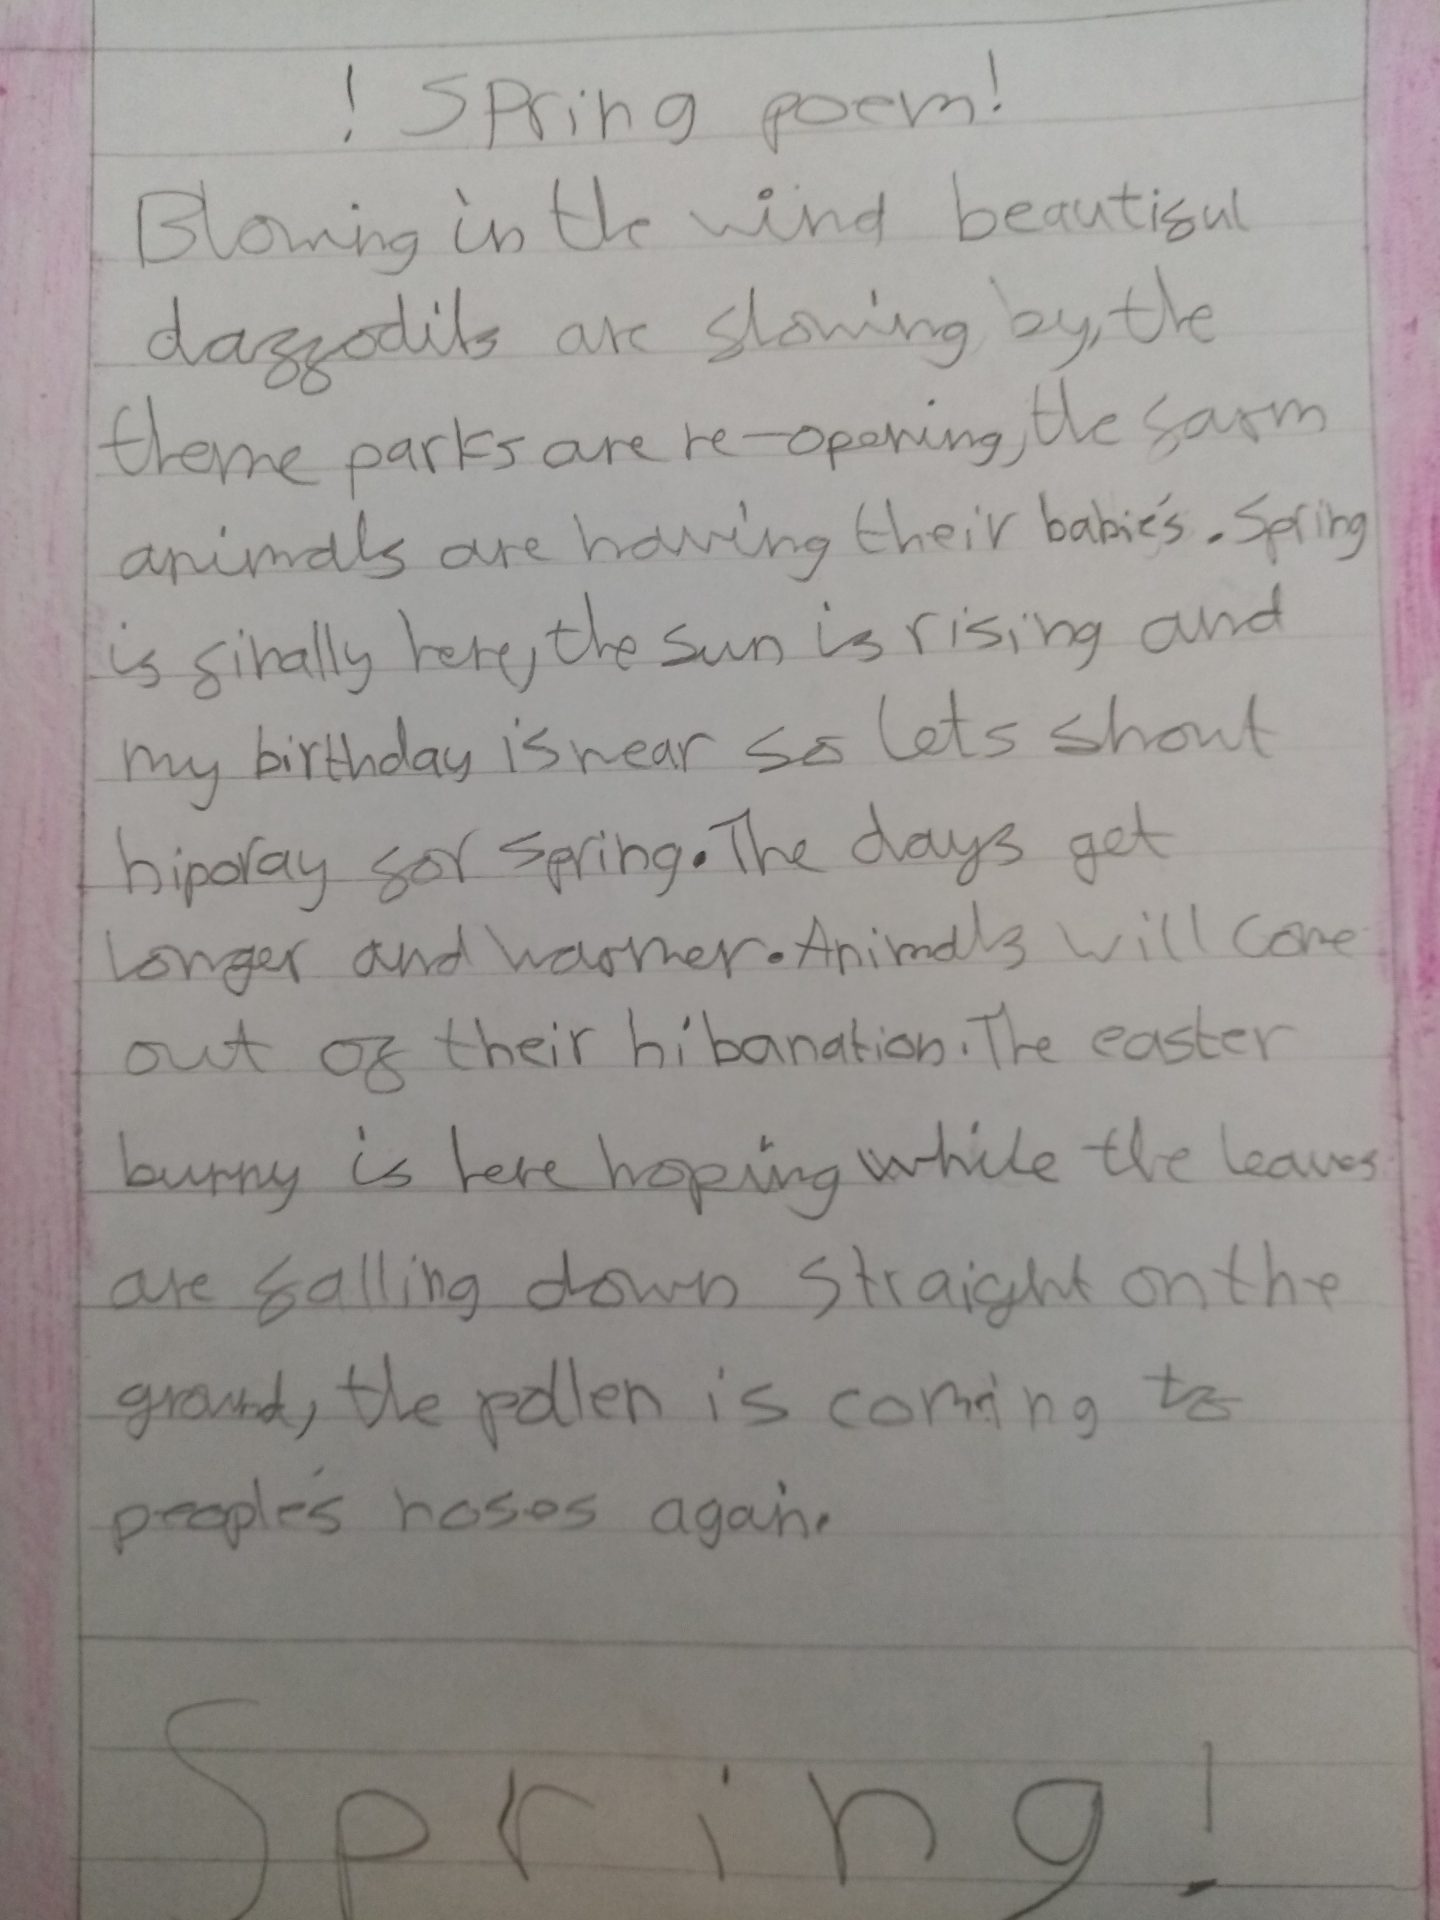 ! Spring poem!
Blowing in the wind beautiful
daffodils are flowing by, the
theme parks are re-opening, the farm
animals are having their babie's. Spring
is finally here, the sun is rising and
my birthday is near so lets shout
hiporay for spring. The days get
longer and warmer. Animals will come
out of their hibanation. The easter
bunny is here hoping while the leaves
are falling down straight on the
ground, the pollen is coming to
people's noses again.
Spring!